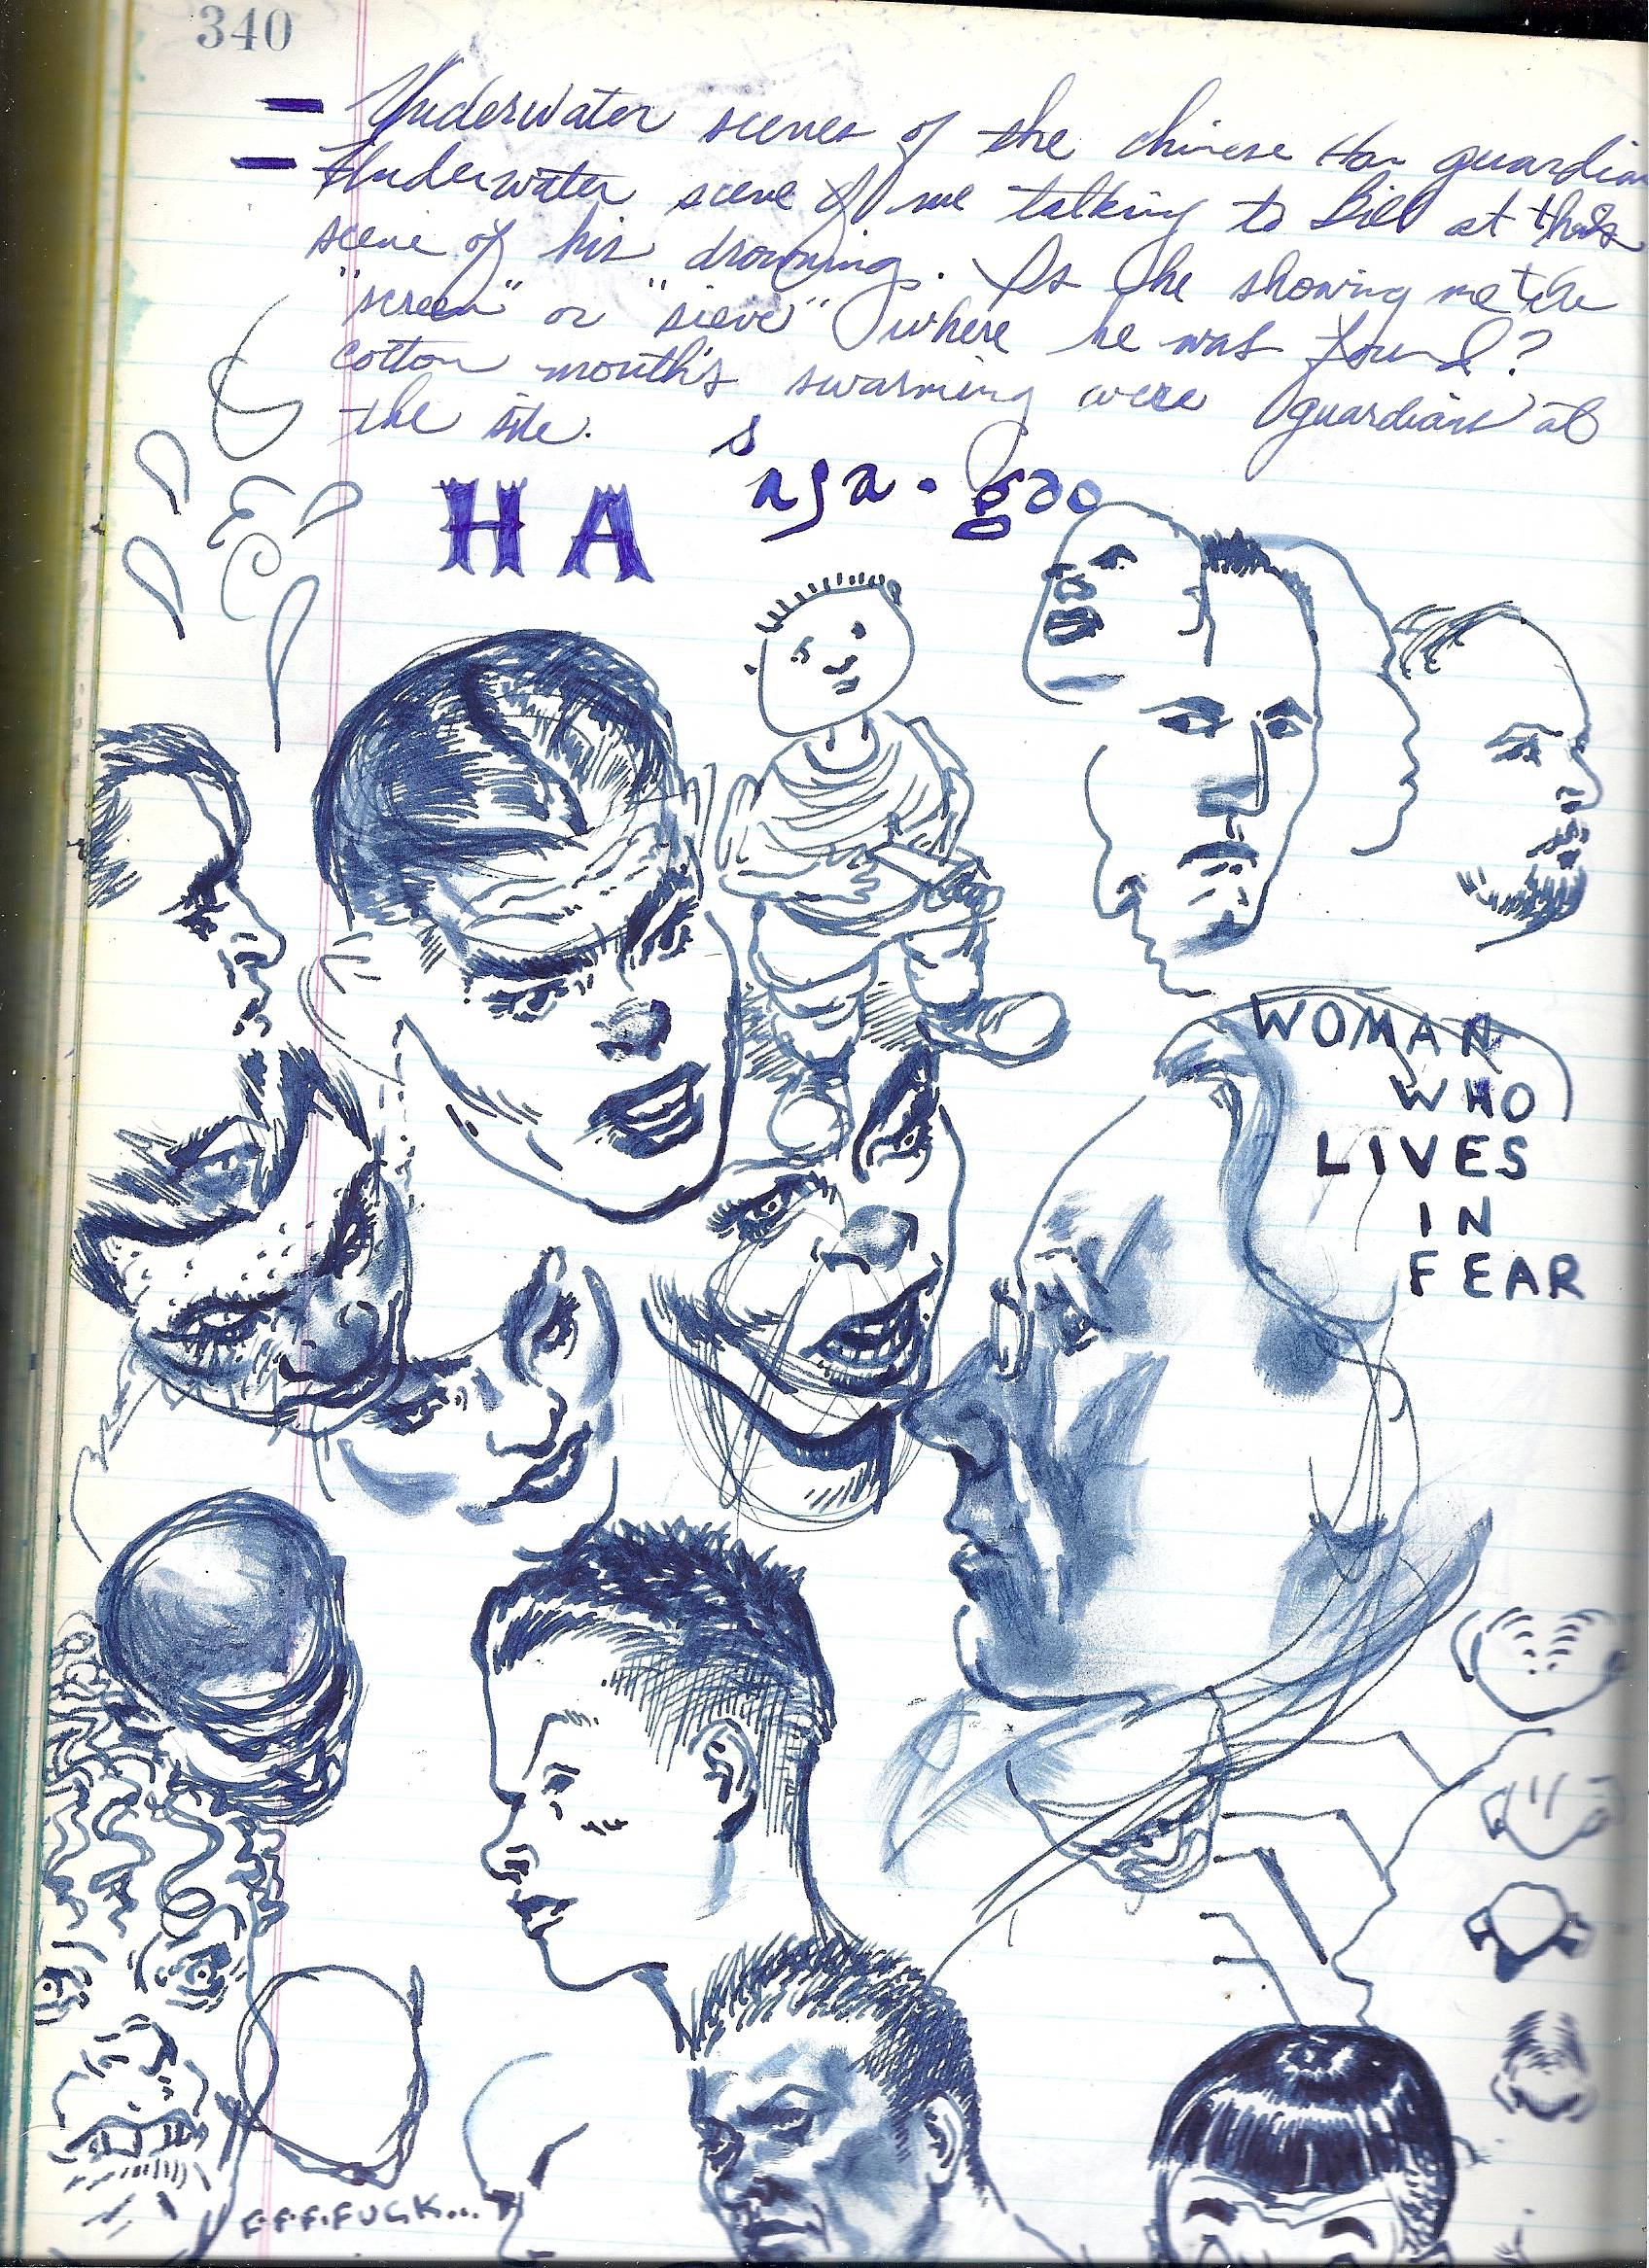 340
— Underwater scenes of the chinese Han guardian
— Underwater scene of me talking to Bill at the
scene of his drowning. Is he showing me the
"screen" or "sieve" where he was found?
cotton mouth's swarming were guardians at
the site.
HA
WOMAN
WHO
LIVES
IN
FEAR
F.F.F.FUCK...